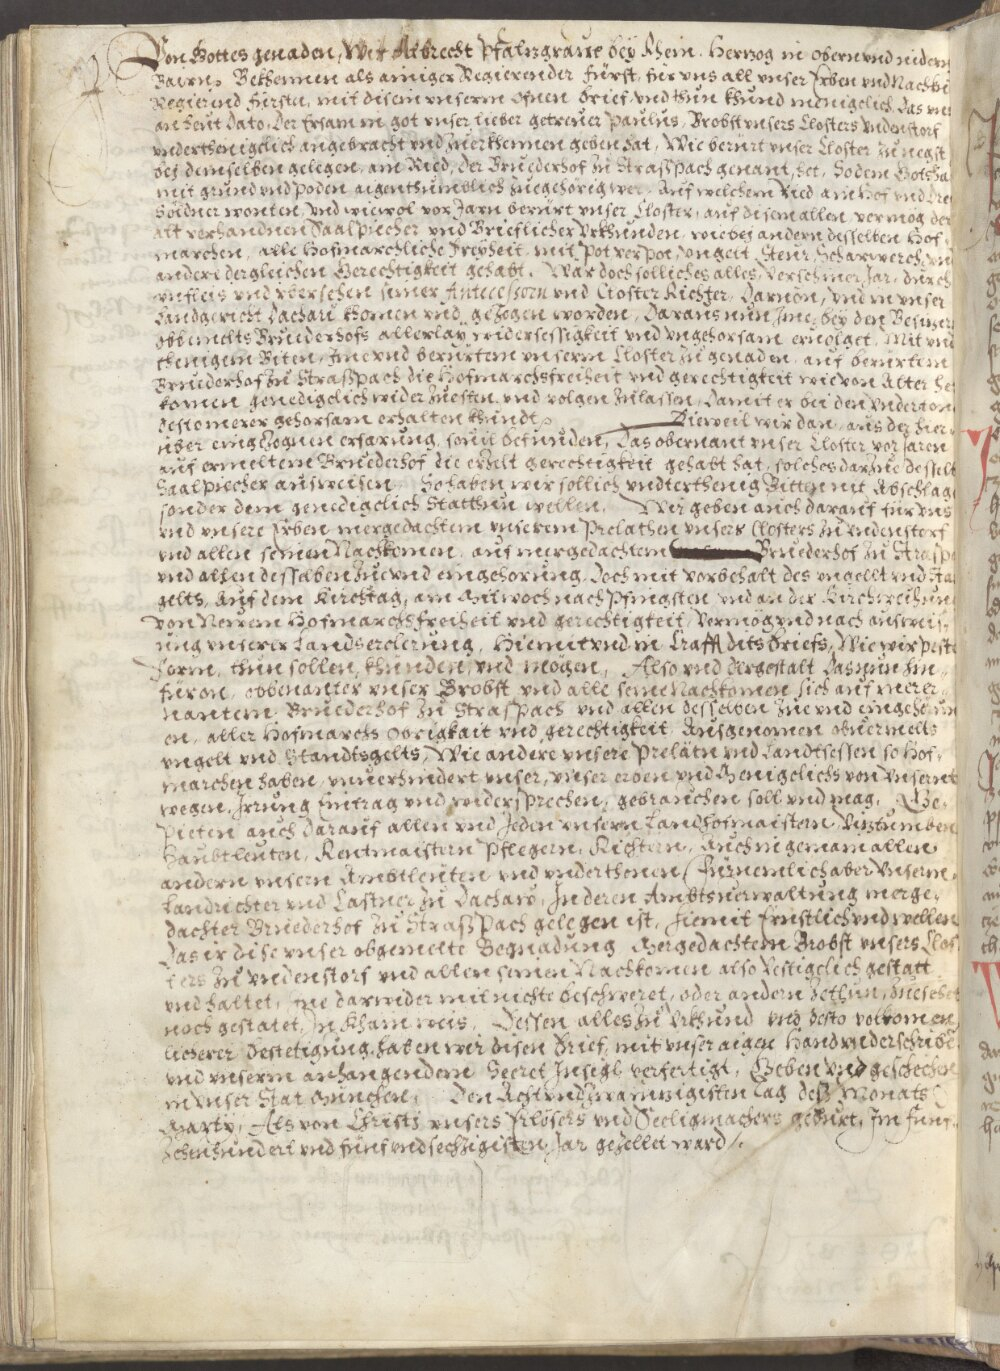 Von Gottes genaden, Wir Albrecht Pfalntzgraue bey Rhein. Hertzog in obern vnd nidern
Bairn, Bekhennen als ainiger Regierender Fürst, für vns all vnser Erben vnd Nachkü
Regierend Fürsten, mit disem vnserm ofnen brief, vnd thun khund menigelich, Das vns
an heut dato, Der Ersam in got vnser lieber getreuer Paulus, Brobst vnsers Closters Vndenstorf
vnderthenigelich angebracht vnd zuerkhennen geben hat, Wie berürt vnser Closter zu negst
bej demselben gelegen, am Ried, der Bruederhof zu Straßpach genant, het, So dem Gotsha
mit grund vnd poden aigenthumblich zuegehörig wer, Auf welchem Ried ain Hof vnd Drei
Söldner wonten, vnd wiewol vor Jarn berürt vnser Closter, auf disem allen, vermög der
alt verhandnen Saalpüecher vnd Brieflicher Vrkhunden, wie bej andern desselben Hof-
marchen, alle Hofmarchliche Freyheit, mit Pot verpot, vngelt, Steur, Scharwerch, vnd
andere dergleichen Gerechtigkeit gehabt. War doch solliches alles, verschiner Jar, durch
vnfleis vnd vbersehen seiner Antecessorn vnd Closter Richter, darvon, vnd in vnser
Landgericht Dachau khomen vnd gezogen worden, Daraus nun Ime, bey den Besitzern
obbemelts Bruederhofs allerlay widersessigkeit vnd vngehorsam eruolget, Mit vnd
thenigem Biten, Ime vnd berürtem vnserm Closter zu genaden, auf berürtem
Bruederhof zu Straßpach die Hofmarchsfreiheit vnd gerechtigkeit wie von Alter he
komen, genedigelich wider zuesten, vnd volgen zulassen, Damit er bei den vnderton
dest merer gehorsam erhalten khündt. Dieweil wir dan, aus der hier-
über eingezognen erfarung, souil befunden, Das obernant vnser Closter vor Jaren
auf ermeltem Bruederhof die erzelt gerechtigkeit gehabt hat, solches darzue desselb
Saalpüecher ausweisen, So haben wir sollich vndterthenig Bitten nit Abschlag
sonder dem genedigelich Statthun wellen. Wir geben auch darauf für vns
vnd vnsere Erben mergedachtem vnserem Prelathen vnsers Closters zu Vndenstorf
vnd allen seinen Nachkomen, auf mergedachtem Bruederhof zu Straßp
vnd allen desselben Zue vnd eingehörung, Doch mit vorbehalt des vngellt vnd Sta
gelts, Auf dem Kirchtag, am Mitwoch nach Pfingsten, vnd an der Kirchweihung
von Newem Hofmarchsfreiheit vnd gerechtigkeit, vermög vnd nach ausweis-
ung vnserer Landserclerung, Hiemit vnd in Crafft dits briefs, Wie wir pest
Form, thun sollen, khunden, vnd mögen, Also vnd dergestalt das nun hin
füron, obbenanter vnser Brobst vnd alle seine Nachkomen sich auf merer-
nantem Bruederhof zu Straßpach vnd allen desselben Zue vnd eingehörun
en, aller Hofmarchs Obrigkait vnd gerechtigkeit, Ausgenomen obuermelts
vngelt vnd Standtsgelts, Wie andere vnsere Prelatn vnd Landtsessen so Hof-
marchen haben, vnuerhindert vnser, vnser erben vnd Menigelichs von Vnsernt
wegen, Irrung Eintrag vnd widersprechen, gebrauchen soll vnd mag, Ge-
Pieten auch darauf allen vnd Jeden vnsern Landhofmaistern, Vitztumben
Haubtleuten, Rentmaistern Pflegern, Richtern, Auch in gemain allen
andern vnsern Ambtleuten vnd vnderthonen, Fürnemlich aber Vnserm
Landrichter vnd Castner zu Dachaw, In deren Ambtsuerwaltung merge-
dachter Bruederhof zu Straßpach gelegen ist, hiemit Ernstlich vnd wellen
Das ir dise vnser obgemelte Begnadung Mergedachtem Brobst vnsers Clos
ters zu Vndenstorf vnd allen seinen Nachkomen also vestigelich gestatt
vnd haltet, Ine darwider mit nichte beschweret, oder andern zethun, zuesehet
noch gestatet, In kham weis, Dessen alles zu Vrkhund vnd desto volkomen
licherer Bestetigung, haben wir disen Brief, mit vnser aigen Hand vnderschribe
vnd vnserm anhangendem Secret Insigl verfertigt, Geben vnd geschechen
in vnser Stat München, Den Acht vnd zwaintzigisten tag deß Monats
Martij, Als von Christj vnsers Erlösers vnd Seeligmachers geburt, Im Funf-
zehenhundert vnd fünf vnd sechtzigisten, Jar gezellet ward.